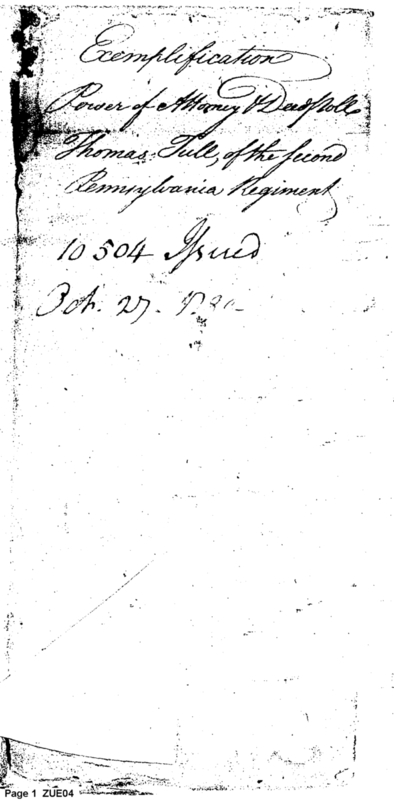 Exemplification
Power of Attorney & Deed Poll
Thomas Tull, of the second
Pennsylvania Regiment
10504 Issued
Oct. 27.
Page 1 ZUE04